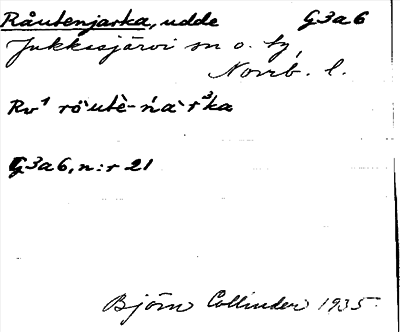 Råutenjarka, udde G3a6
Jukkasjärvi sn o. tg,
Norrb. l.
Rv¹
G3a6, n:r 21
Björn Collinder 1935.